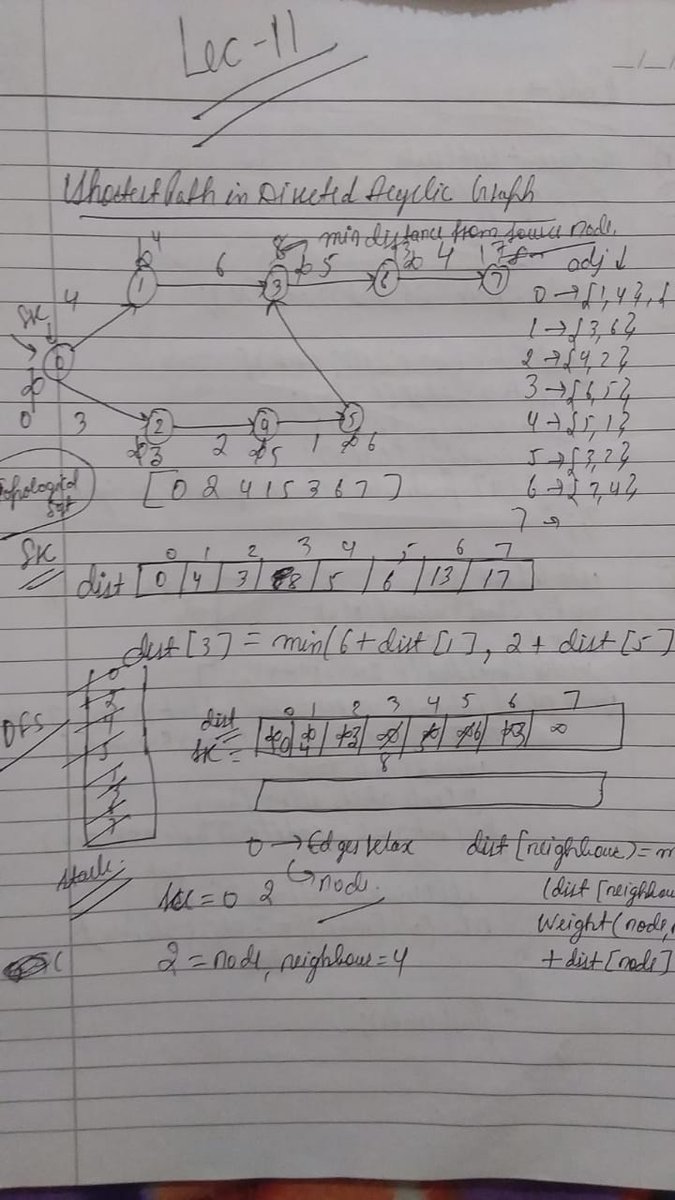 Lec-11
Shortest Path in Directed Acyclic Graph
min distance from source node.
4 6 8 5 4 17 adj ↓
4 1 3 6 7 0 → {1,4}, {
SRC 1 → {3,6}
0 2 → {4,2}
∞ 3 → {6,5}
0 3 2 4 5 4 → {5,1}
∞3 2 ∞5 1 ∞6 5 → {3,2}
Topological Sort [0 2 4 1 5 3 6 7] 6 → {7,4}
7 →
SRC 0 1 2 3 4 5 6 7
dist 0 4 3 8 5 6 13 17
dist[3] = min(6 + dist[1], 2 + dist[5]
DFS 0 2 4 5 1 3 6 7
dist 0 1 2 3 4 5 6 7
SRC = ∞0 ∞4 ∞3 ∞ ∞ ∞6 13 ∞
8
0 → Edges relax dist[neighbour) = m
Stack. ↳ node. (dist[neighbou
src = 0 2 Weight(node,
2 = node, neighbour = 4 + dist[node]